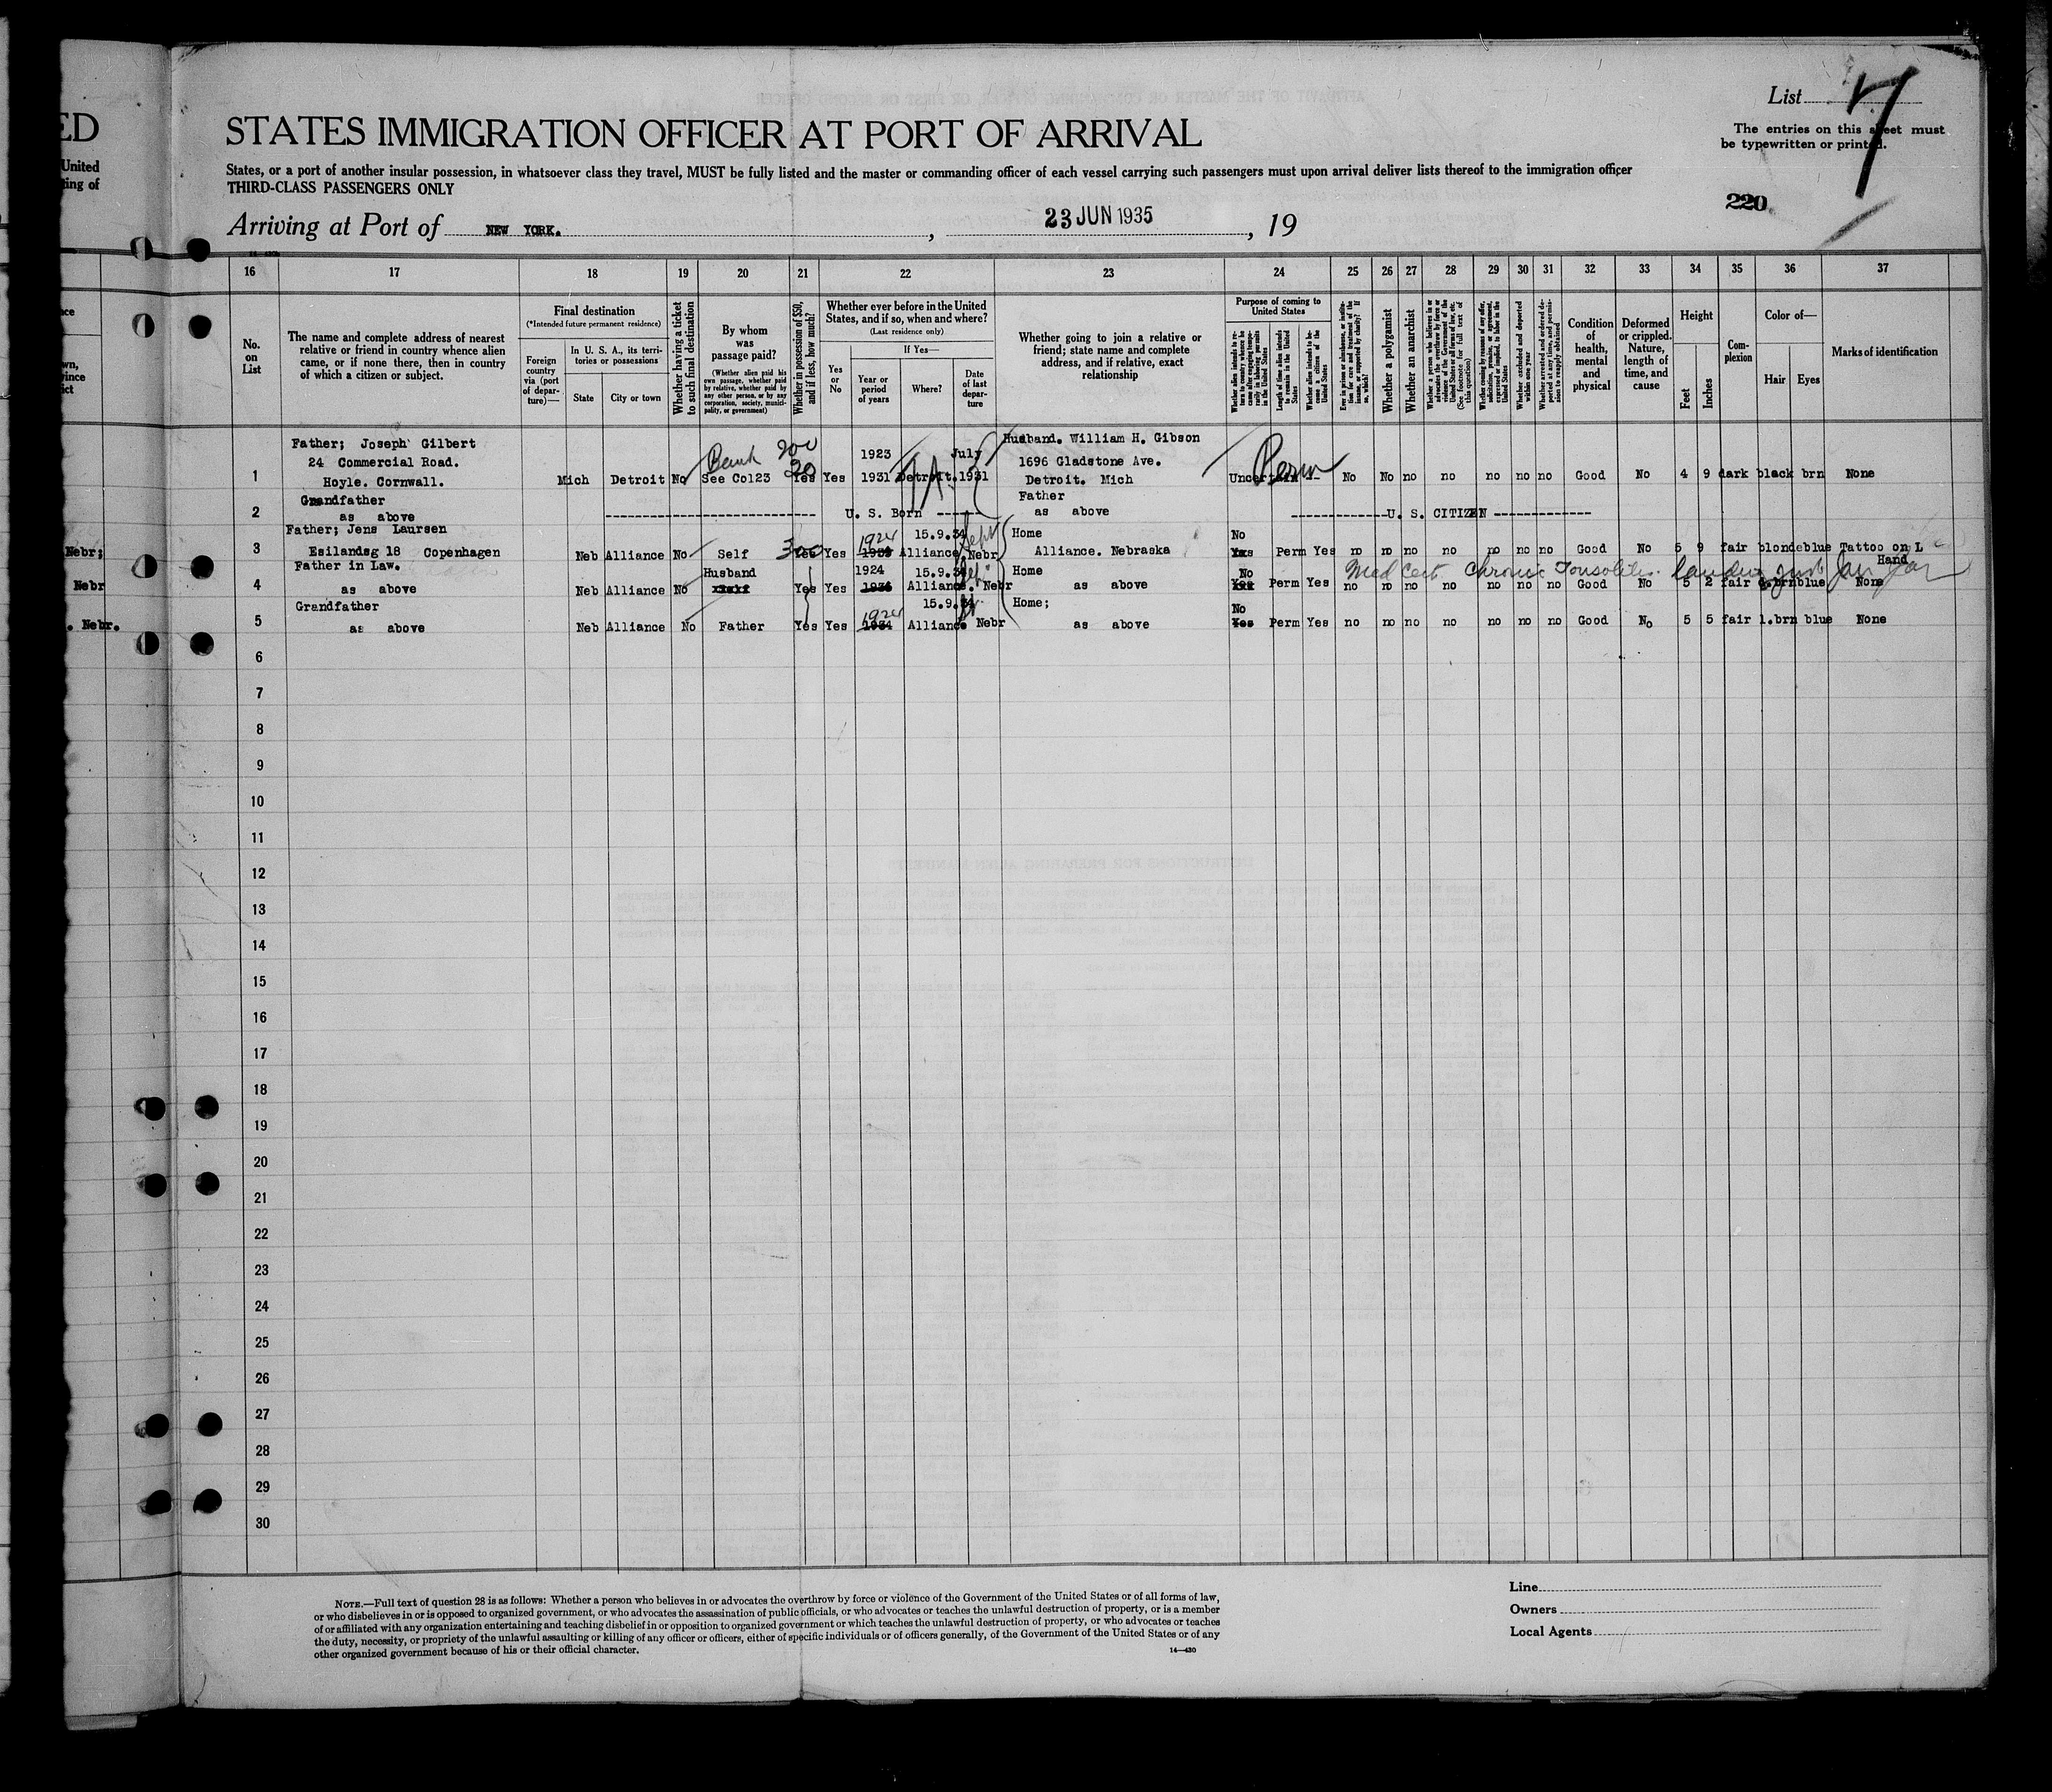 ED
United
ing of
List 7
The entries on this sheet must
be typewritten or printed.
STATES IMMIGRATION OFFICER AT PORT OF ARRIVAL
States, or a port of another insular possession, in whatsoever class they travel, MUST be fully listed and the master or commanding officer of each vessel carrying such passengers must upon arrival deliver lists thereof to the immigration officer
THIRD-CLASS PASSENGERS ONLY
220
Arriving at Port of NEW YORK. , 23 JUN 1935 , 19
16 17 18 19 20 21 22 23 24 25 26 27 28 29 30 31 32 33 34 35 36 37
No.
on
List
The name and complete address of nearest
relative or friend in country whence alien
came, or if none there, then in country
of which a citizen or subject.
Final destination
(*Intended future permanent residence)
Foreign
country
via (port
of depar-
ture)—
In U. S. A., its terri-
tories or possessions
State
City or town
Whether having a ticket
to such final destination
By whom
was
passage paid?
(Whether alien paid his
own passage, whether paid
by relative, whether paid by
any other person, or by any
corporation, society, munici-
pality, or government)
Whether in possession of $50,
and if less, how much?
Whether ever before in the United
States, and if so, when and where?
(Last residence only)
Yes
or
No
If Yes—
Year or
period
of years
Where?
Date
of last
depar-
ture
Whether going to join a relative or
friend; state name and complete
address, and if relative, exact
relationship
Purpose of coming to
United States
Whether alien intends to re-
turn to country whence he
came after engaging tempo-
rarily in laboring pursuits
in the United States
Length of time alien intends
to remain in the United
States
Whether alien intends to be-
come a citizen of the
United States
Ever in prison or almshouse, or institu-
tion for care and treatment of the
insane, or supported by charity? If
so, which?
Whether a polygamist
Whether an anarchist
(See footnote for full text of
this question)
Whether excluded and deported
within one year
Whether arrested and ordered de-
ported at any time, and permis-
sion to reapply obtained
Condition
of
health,
mental
and
physical
Deformed
or crippled.
Nature,
length of
time, and
cause
Height
Feet
Inches
Com-
plexion
Color of—
Hair
Eyes
Marks of identification
Father; Joseph Gilbert
24 Commercial Road.
Hoyle. Cornwall.
1 Mich Detroit No Bank 200 20 See Col23 Yes Yes 1923 1931 Detroit. July 1931
Husband. William H. Gibson
1696 Gladstone Ave.
Detroit. Mich
Perm No No no no no no no Good No 4 9 dark black brn None
2 Grandfather
as above
U. S. Born
Father
as above
U. S. CITIZEN
3 Father; Jens Laursen
Esilandsg 18 Copenhagen
Neb Alliance No Self 300 Yes Yes 1924 Alliance Nebr 15.9.34 Sept
Home
Alliance. Nebraska
No Yes Perm Yes no no no no no no no Good No 5 9 fair blonde blue Tattoo on L
Hand
Nebr;
4 Father in Law.
as above
Neb Alliance No Husband Yes Yes 1924 1934 Alliance. Nebr 15.9.34
Home
as above
No Yes Perm Yes no no no no no no no Good No 5 2 fair blue None
Med Cert Chronic
Nebr
5 Grandfather
as above
Neb Alliance No Father Yes Yes 1924 1934 Alliance Nebr 15.9.34
Home;
as above
No Yes Perm Yes no no no no no no no Good No 5 5 fair l.brn blue None
. Nebr.
6
7
8
9
10
11
12
13
14
15
16
17
18
19
20
21
22
23
24
25
26
27
28
29
30
NOTE.—Full text of question 28 is as follows: Whether a person who believes in or advocates the overthrow by force or violence of the Government of the United States or of all forms of law,
or who disbelieves in or is opposed to organized government, or who advocates the assassination of public officials, or who advocates or teaches the unlawful destruction of property, or is a member
of or affiliated with any organization entertaining and teaching disbelief in or opposition to organized government or which teaches the unlawful destruction of property, or who advocates or teaches
the duty, necessity, or propriety of the unlawful assaulting or killing of any officer or officers, either of specific individuals or of officers generally, of the Government of the United States or of any
other organized government because of his or their official character.
14—430
Line
Owners
Local Agents